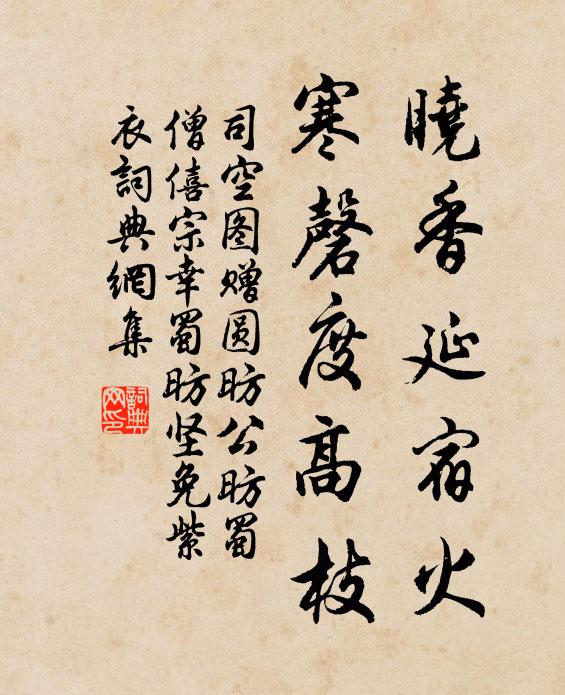 曉香延宿火
寒磬度高枝
司空图赠圆昉公昉蜀
僧僖宗幸蜀昉坚免紫
衣詞典網集
詞典网印